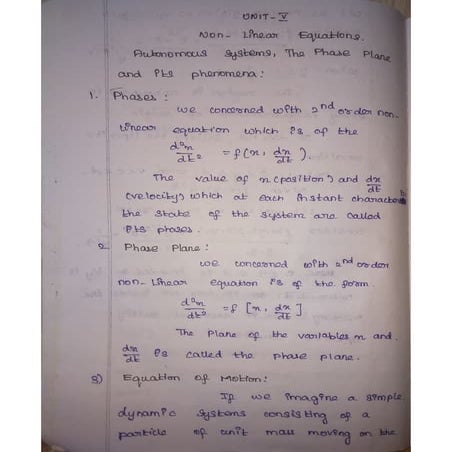 UNIT-V
Non-Linear Equations.
Autonomous systems, The Phase Plane
and its phenomena:
1. Phases:
we concerned with 2nd order non-
linear equation which is of the
d²x/dt² = f(x, dx/dt).
The value of x (position) and dx/dt
(velocity) which at each instant
the state of the system are called
its phases.
2. Phase Plane:
we concerned with 2nd order
non-linear equation is of the form.
d²x/dt² = f [x, dx/dt]
The Plane of the variables x and
dx/dt is called the phase plane.
3) Equation of Motion:
If we imagine a simple
dynamic systems consisting of a
particle of unit mass moving on the